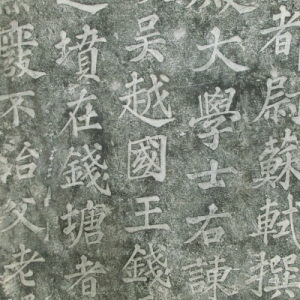 都尉蘇軾撰
大學士右諫
吳越國王錢
墳在錢塘者
不治父老